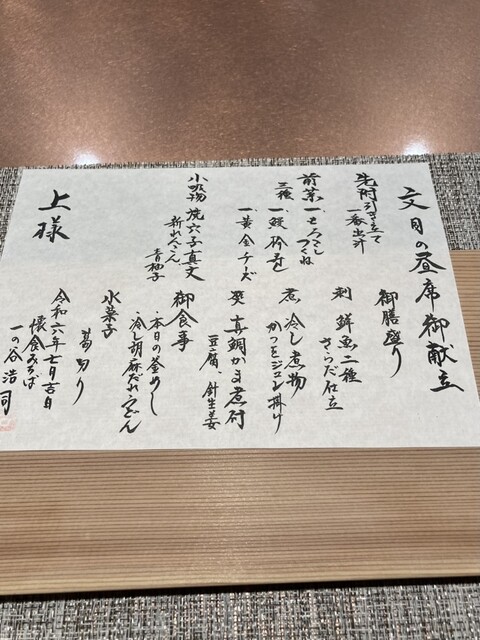 文月の昼席御献立
先附 引き立て
一番出汁
前菜 一、もろこし
つくね
三種 一、鰻砧巻
一、黄金チーズ
小吸物 焼穴子真丈
新れんこん
青柚子
御膳盛り
刺 鮮魚二種
さらだ仕立
煮 冷し煮物
かつをジュレ掛け
発 真鯛かま煮付
豆腐、針生姜
御食事
・本日の釜めし
・冷し胡麻だれうどん
水菓子
葛切り
令和六年七月吉日
懐食みちば
一の谷浩司
上様